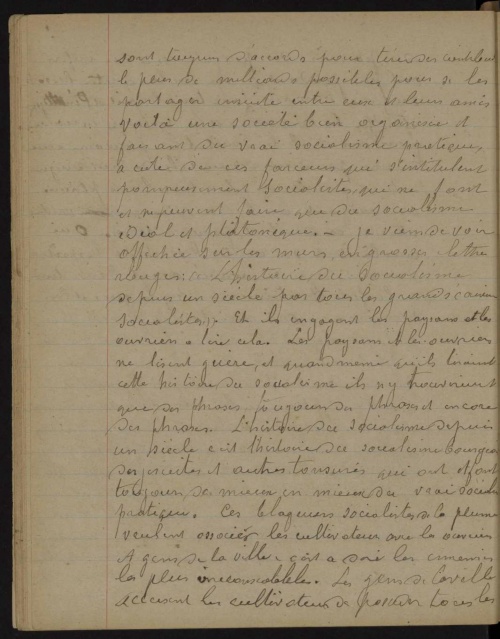 sont toujours d'accord pour tirer des contribuables
le plus de milliards possibles pour se les
partager ensuite entre eux et leurs amis
Voilà une société bien organisée et
faisant du vrai socialisme pratique,
a coté de ces farceurs qui s'intitulent
pompeusement Socialistes, qui ne font
et ne peuvent faire que du socialisme
idéal et platonique. - je viens de voir
affichée sur les murs, en grosses lettre
rouges: « L'histoire du Socialisme
depuis un siècle par tous les grands écrivains
socialistes). Et ils engagent les paysans et les
ouvriers a lire cela. Les paysans et les ouvriers
ne lisent guère, et quand même qu'ils liraient
cette histoire du socialisme ils n'y trouveraient
que des phrases, toujours des phrases et encore
des phrases. L'histoire du socialisme depuis
un siècle c'est l'histoire du socialisme bourgeois
des jesuites et autres tonsurés qui ont et font
toujours de mieux en mieux du vrai socialisme
pratique. Ces blagueurs socialistes de la plume
veulent associer les cultivateurs avec les ouvriers
et gens de la ville c'est a dire les ennemis
les plus irreconciliables. Les gens de la ville
accusent les cultivateurs de posseder tous les